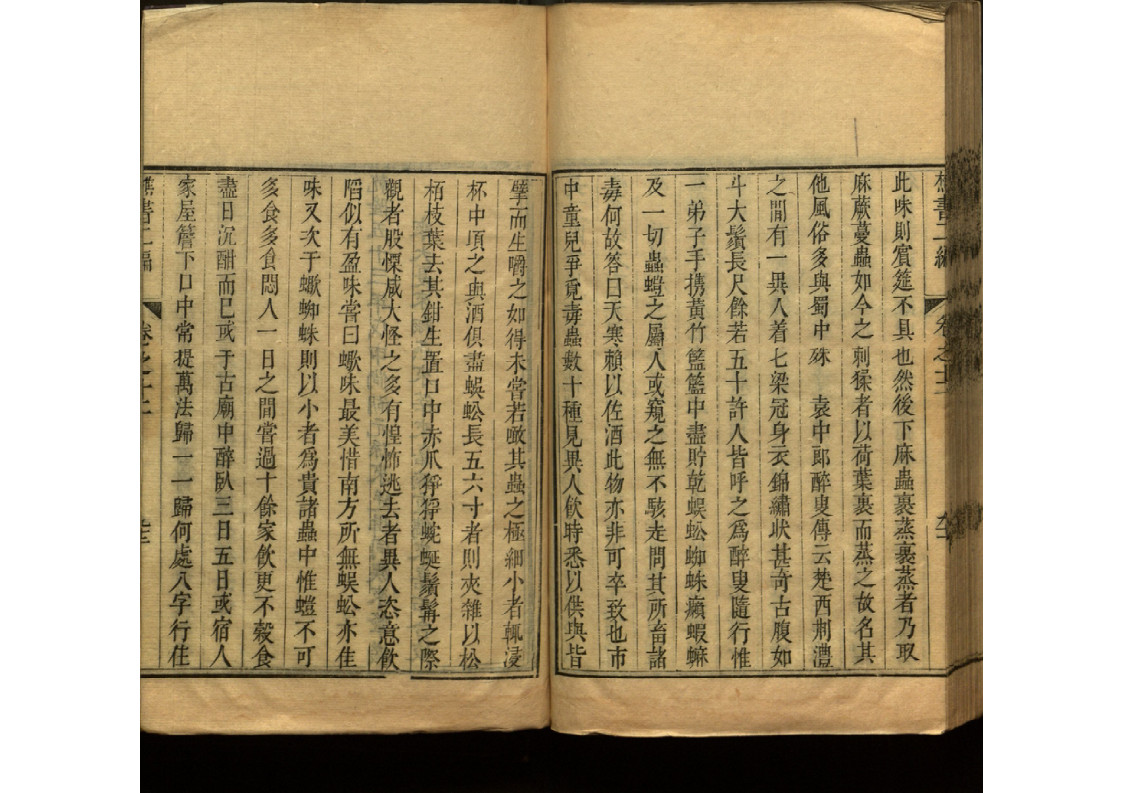 書二編 卷之十二
此味則賔筵不具也然後下麻蟲裹蒸裹蒸者乃取
麻蕨蔓蟲如今之刺猱者以荷葉裹而蒸之故名其
他風俗多與蜀中殊 袁中郎醉叟傳云楚西荆澧
之間有一異人着七梁冠身衣錦繡狀甚奇古腹如
斗大鬚長尺餘若五十許人皆呼之爲醉叟隨行惟
一弟子手携黃竹籃籃中盡貯乾蜈蚣蜘蛛癩蝦蟆
及一切蟲螘之屬人或窺之無不駭走問其所畜諸
毒何故答曰天寒賴以佐酒此物亦非可卒致也市
中童兒爭覓毒蟲數十種見異人飲時悉以供與皆
擘而生嚼之如得未嘗若畝其蟲之極細小者輒浸
杯中頃之與酒俱盡蜈蚣長五六寸者則夾雜以松
栢枝葉去其鉗生置口中赤爪獰獰蜿蜒鬚髯之際
觀者股慄咸大怪之多有惶怖逃去者異人恣意飲
䧟似有盈味嘗曰蠍味最美惜南方所無蜈蚣亦佳
味又次于蠍蜘蛛則以小者爲貴諸蟲中惟螘不可
多食多食悶人一日之間嘗過十餘家飲更不穀食
盡日沉酣而已或于古廟中醉臥三日五日或宿人
家屋簷下口中常提萬法歸一一歸何處八字行住
樵書二編 卷之十二